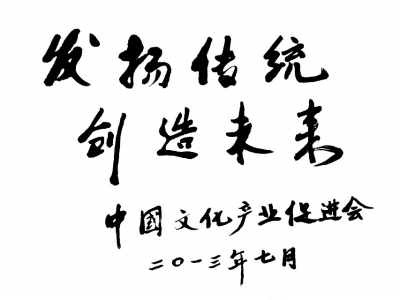 发扬传统
创造未来
中国文化产业促进会
二〇一三年七月